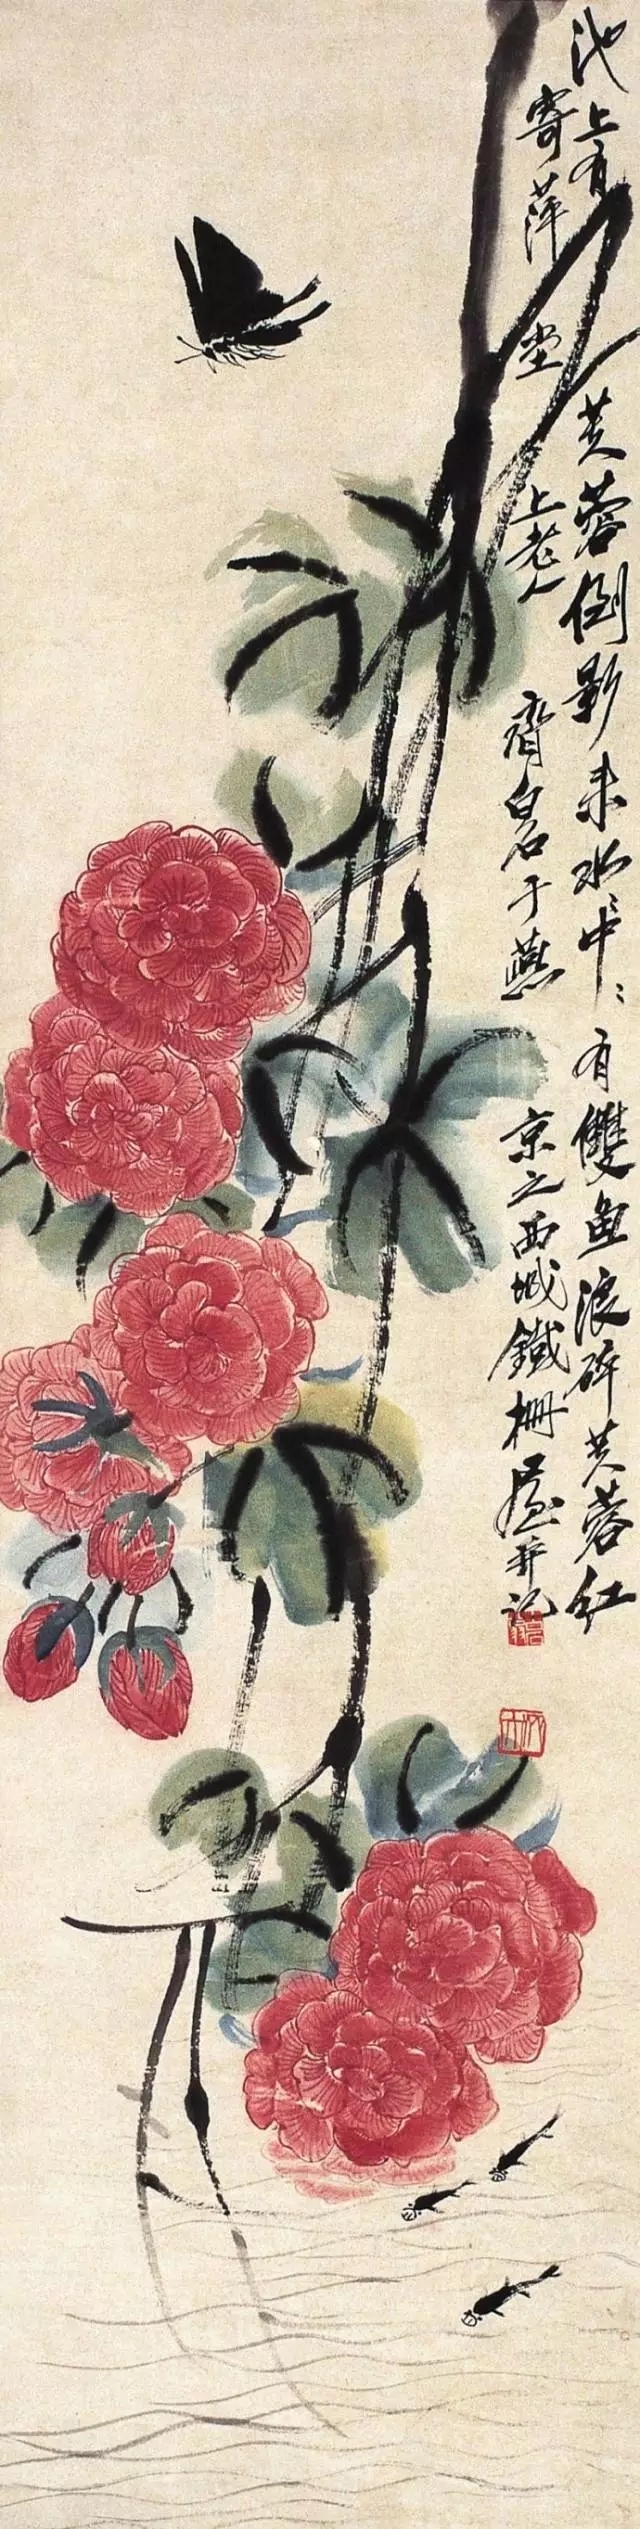 池上有芙蓉倒影来水〻中〻有雙魚浪碎芙蓉紅
寄萍堂上老人齊白石于燕京之西城鐵柵屋并記